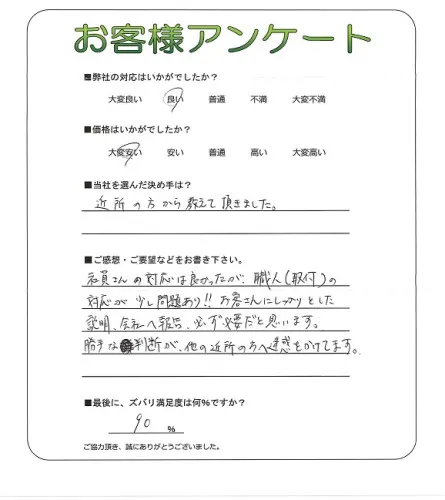 お客様アンケート
■弊社の対応はいかがでしたか?
大変良い 良い 普通 不満 大変不満
■価格はいかがでしたか?
大変安い 安い 普通 高い 大変高い
■当社を選んだ決め手は?
近所の方から教えて頂きました。
■ご感想・ご要望などをお書き下さい。
社員さんの対応は良かったが、職人(取付)の
対応が少し問題あり!!お客さんにしっかりとした
説明、会社へ報告、必ず必要だと思います。
勝手な判断が、他の近所の方へ迷惑をかけてます。
■最後に、ズバリ満足度は何%ですか?
90 %
ご協力頂き、誠にありがとうございました。